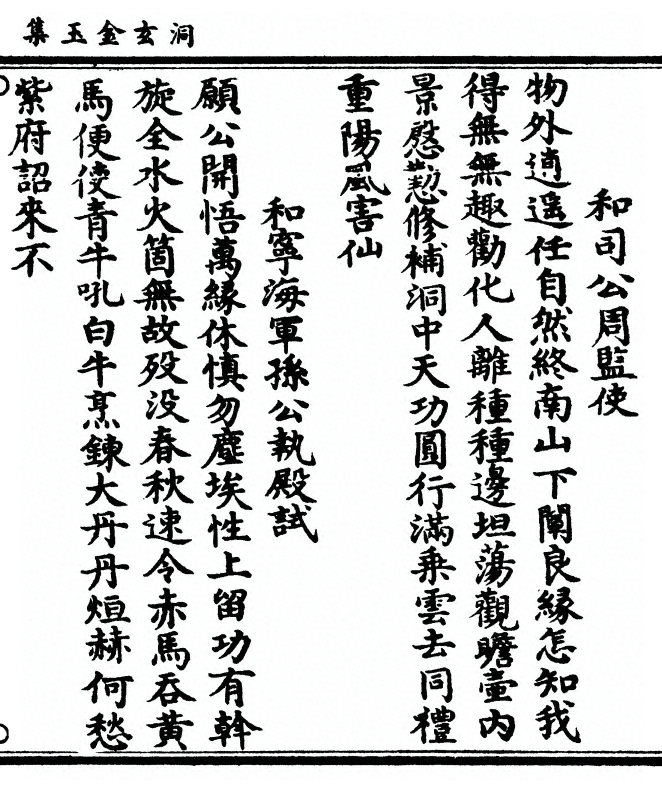 洞玄金玉集
和司公周監使
物外逍遥任自然終南山下闡良縁怎知我
得無無趣勸化人離種種邊坦蕩觀瞻壷内
景慇懃修補洞中天功圓行滿乗雲去同禮
重陽風害仙
和寧海軍孫公執殿試
願公開悟萬縁休慎勿塵埃性上留功有幹
旋全水火箇無故殁没春秋速令赤馬吞黄
馬便使青牛吼白牛烹鍊大丹丹烜赫何愁
紫府詔來不